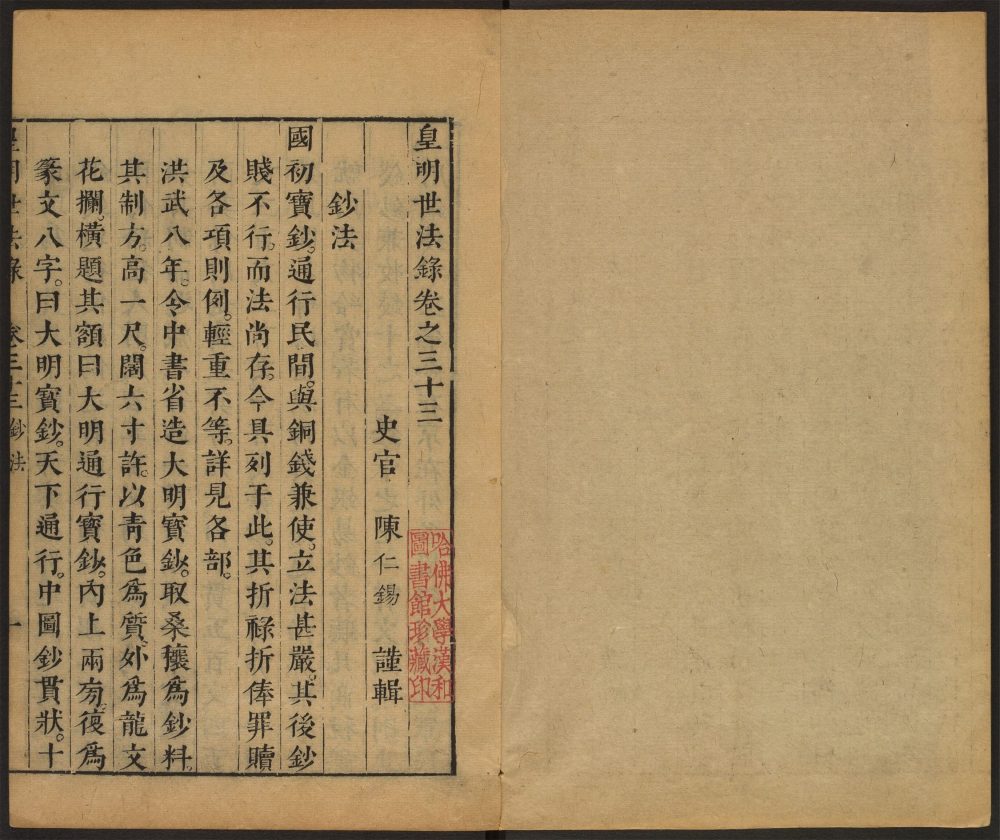 皇明世法錄卷之三十三
史官 陳仁錫 謹輯
鈔法
國初寶鈔。通行民間。與銅錢兼使。立法甚嚴。其後鈔
賤不行。而法尚存。今具列于此。其折祿折俸罪贖
及各項則例。輕重不等。詳見各部。
洪武八年。令中書省造大明寶鈔。取桑穰爲鈔料。
其制方。高一尺。闊六寸許。以青色爲質。外爲龍文
花攔。橫題其額曰大明通行寶鈔。內上兩旁。復爲
篆文八字。曰大明寶鈔。天下通行。中圖鈔貫狀。十
皇明世法錄 卷三十三 鈔法 一
哈佛大學漢和
圖書館珍藏印